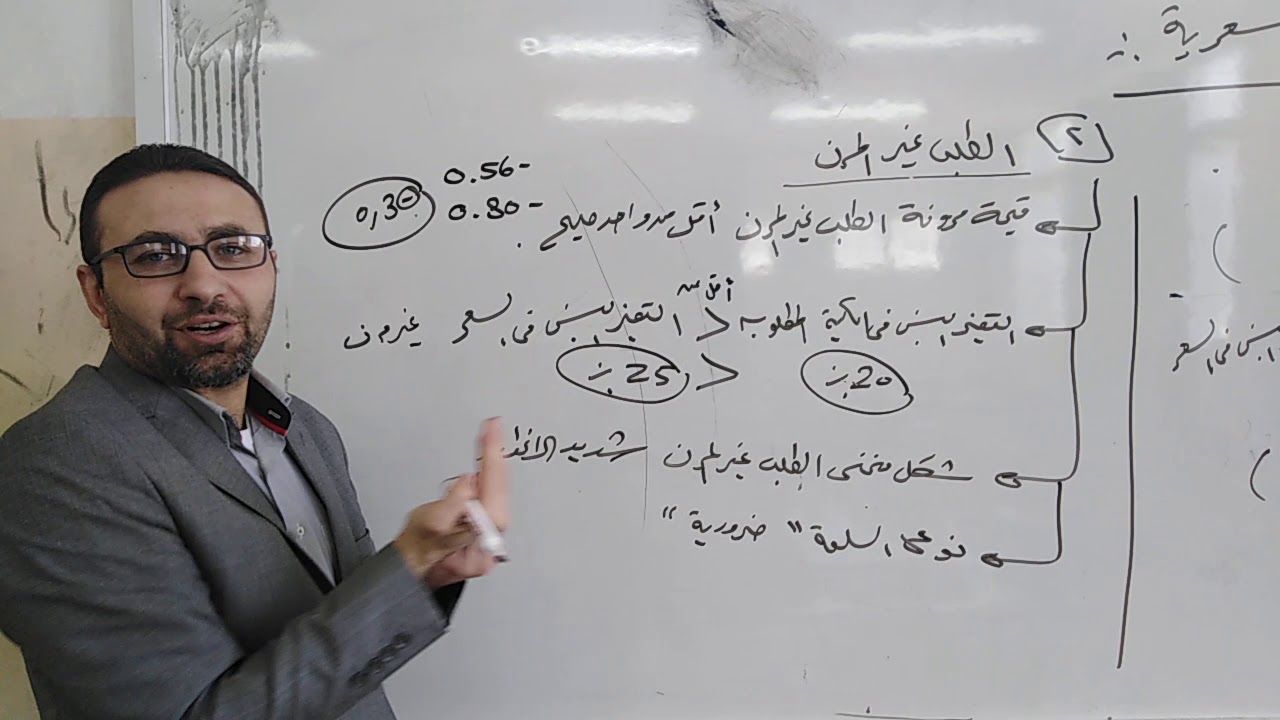 سعرية :
٢ الطلب غير المرن
قيمة مرونة الطلب غير المرن أقل من واحد صحيح .
0.56-
0.80-
0,30
أقل من
التغير النسبي في الكمية المطلوبة > التغير النسبي في السعر غير مرن
20٪ > 25٪
شكل منحنى الطلب غير المرن شديد الانحدار
نوع السلعة " ضرورية "
في السعر